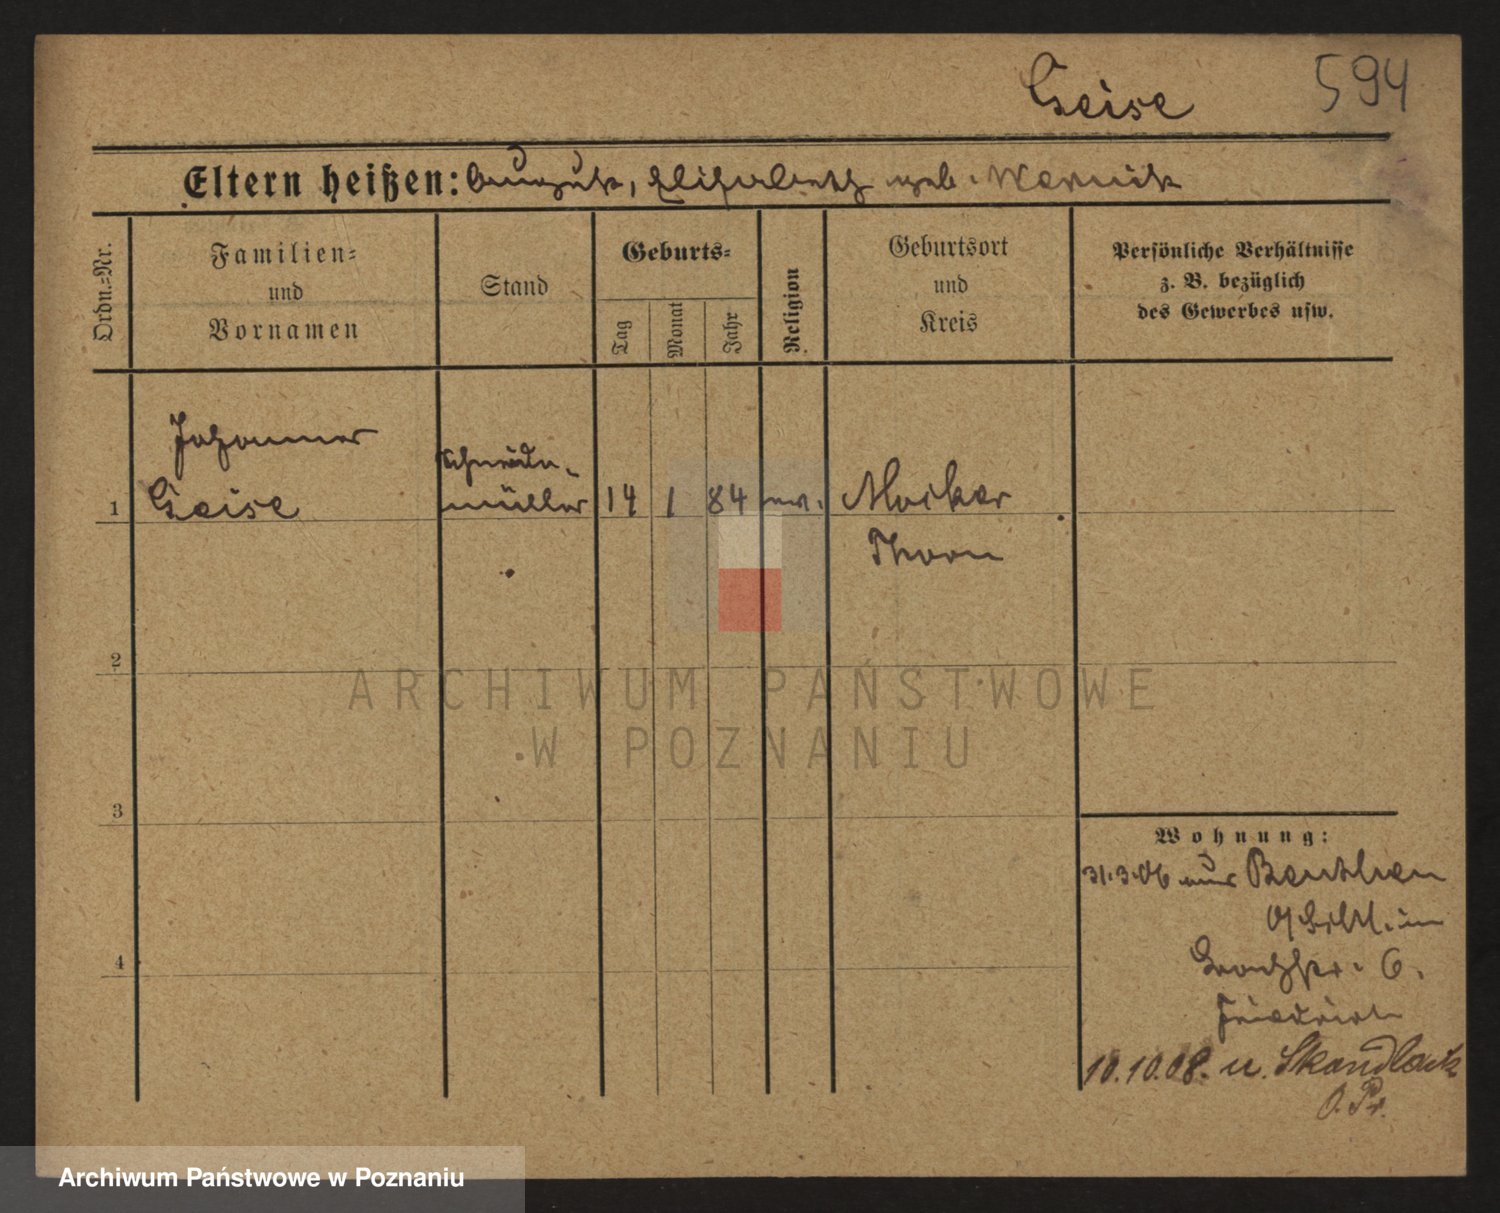 Geise 594
Eltern heißen: August, Elisabeth geb. Wernick
Ordn.-Nr.
Familien-
und
Vornamen
Stand
Geburts-
Tag
Monat
Jahr
Religion
Geburtsort
und
Kreis
Persönliche Verhältnisse
z. B. bezüglich
des Gewerbes usw.
Johannes
Geise
Schneide-
müller
1
14 1 84 ev.
Mocker
Thorn
2
3
4
ARCHIWUM PAŃSTWOWE
W POZNANIU
Wohnung:
31.3.06 aus Beuthen
6.
Friedrich
10.10.08. n. Skandlack
O. Pr.
Archiwum Państwowe w Poznaniu